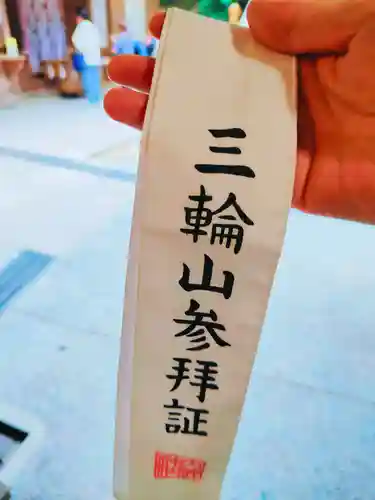 三輪山参拜証